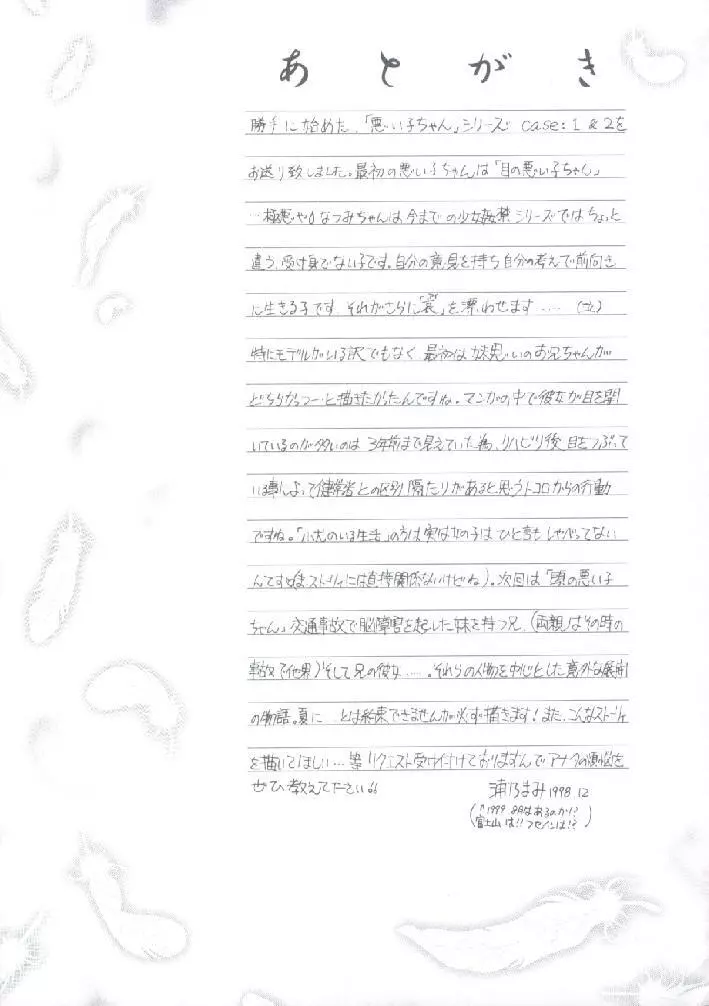 あとがき
勝手に始めた、「悪い子ちゃん」シリーズ case: 1 & 2を
お送り致しました。最初の悪い子ちゃんは「目の悪い子ちゃん」
なつみちゃんは今までの少女 シリーズではちょっと
違う、受け身でない子です。自分の意見を持ち自分の考えで前向き
に生きる子です。それがさらに「哀」を漂わせます……
特にモデルがいる訳でもなく 最初は妹思いのお兄ちゃんが
と描きたかったんですね。マンガの中で彼女が目を開
いているのが多いのは 3年前まで見えていた為、リハビリ後 目をつぶって
いる事によって健常者との区別 隔たりがあると思うトコロからの行動
ですね。「 のいる生活」の方は実は女の子は ひと言も しゃべってない
んです には直接関係ないけどね)。次回は「頭の悪い子
ちゃん」交通事故で脳障害を起こした妹を持つ兄、(両親はその時の
事故で他界)そして兄の彼女……。それらの人物を中心とした意外な展開
の物語。夏に…とは約束できませんが必ず描きます!また、こんなストーリィ
を描いてほしい…等 リクエスト受け付けておりますんでアナタの を
ぜひ教えてください
まみ 1998.12
(↑1999 8月はあるのか!?
富士山は!! フセインは!? )